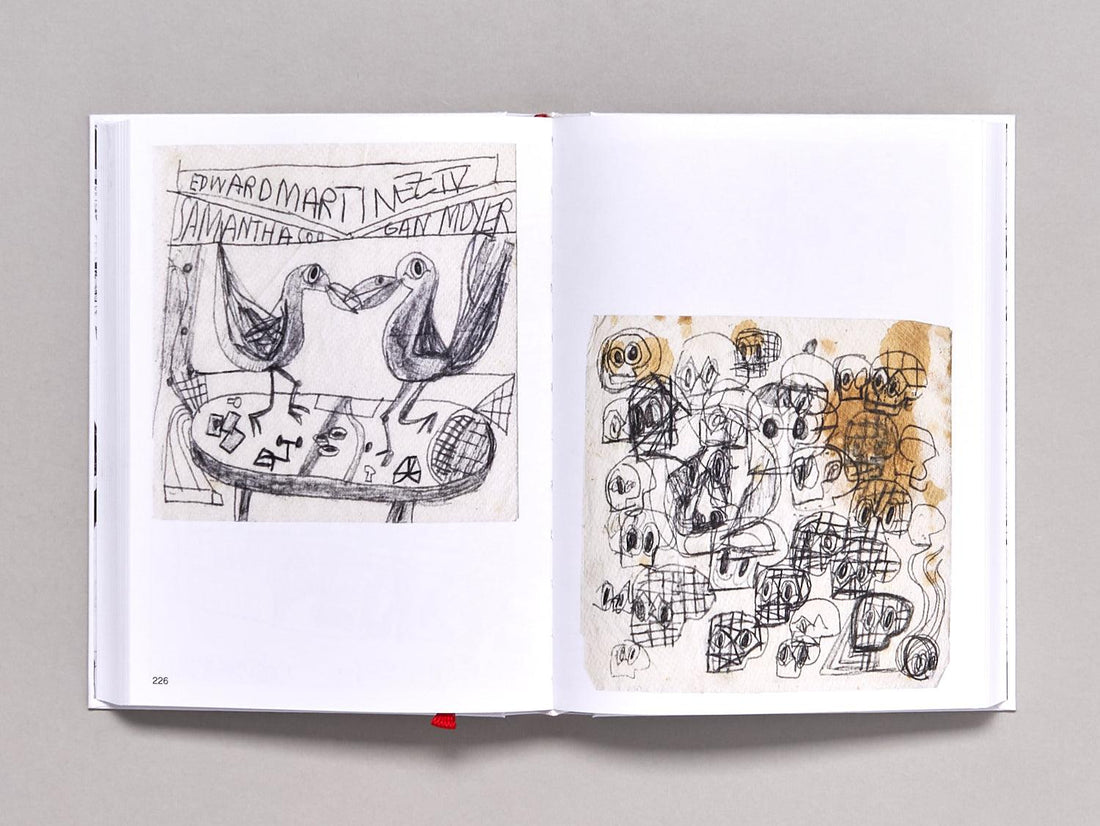 EDWARDMARTINEZ IV
SAMANTHA GAN MOYER
226